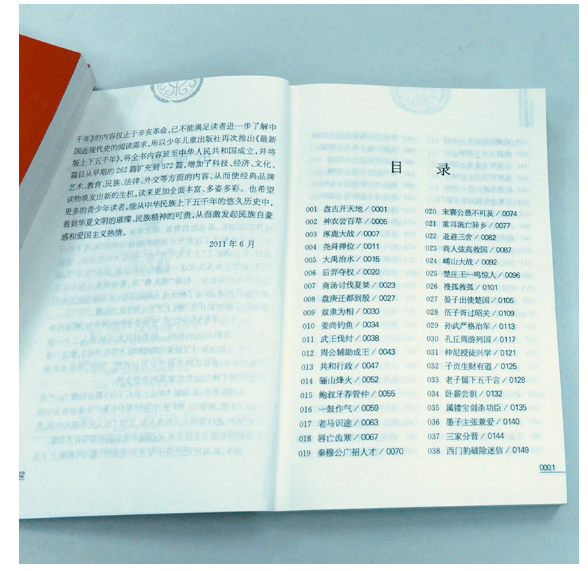 千年》的内容仅止于辛亥革命,已不能满足读者进一步了解中
国近现代史的阅读需求,所以少年儿童出版社再次推出《最新
版上下五千年》,将全书内容延至中华人民共和国成立,并将
篇目从早期的262篇扩充到372篇,增加了科技、经济、文化、
艺术、教育、民族、法律、外交等方面的内容,从而使经典品牌
读物焕发出新的生机,读来更加全面丰富、多姿多彩。也希望
更多的青少年读者,能从中华民族上下五千年的悠久历史中,
看到华夏文明的璀璨、民族精神的可贵,从而激发起民族自豪
感和爱国主义热情。
2011年6月
目 录
001 盘古开天地/0001
002 神农尝百草/0005
003 涿鹿大战/0007
004 尧舜禅位/0011
005 大禹治水/0015
006 后羿夺权/0020
007 商汤讨伐夏桀/0023
008 盘庚迁都到殷/0027
009 奴隶为相/0030
010 姜尚钓鱼/0034
011 武王伐纣/0038
012 周公辅助成王/0043
013 共和行政/0047
014 骊山烽火/0052
015 鲍叔牙荐管仲/0055
016 一鼓作气/0059
017 老马识途/0063
018 唇亡齿寒/0067
019 秦穆公广招人才/0070
020 宋襄公愚不可及/0074
021 重耳流亡异乡/0077
022 退避三舍/0082
023 商人弦高救国/0087
024 崤山大战/0092
025 楚庄王一鸣惊人/0096
026 搜孤救孤/0101
027 晏子出使楚国/0105
028 伍子胥过昭关/0109
029 孙武严格治军/0113
030 孔丘周游列国/0117
031 仲尼授徒兴学/0121
032 子贡生财有道/0125
033 老子留下五千言/0128
034 卧薪尝胆/0132
035 属镂宝剑杀功臣/0135
036 墨子主张兼爱/0140
037 三家分晋/0144
038 西门豹破除迷信/0149
0001